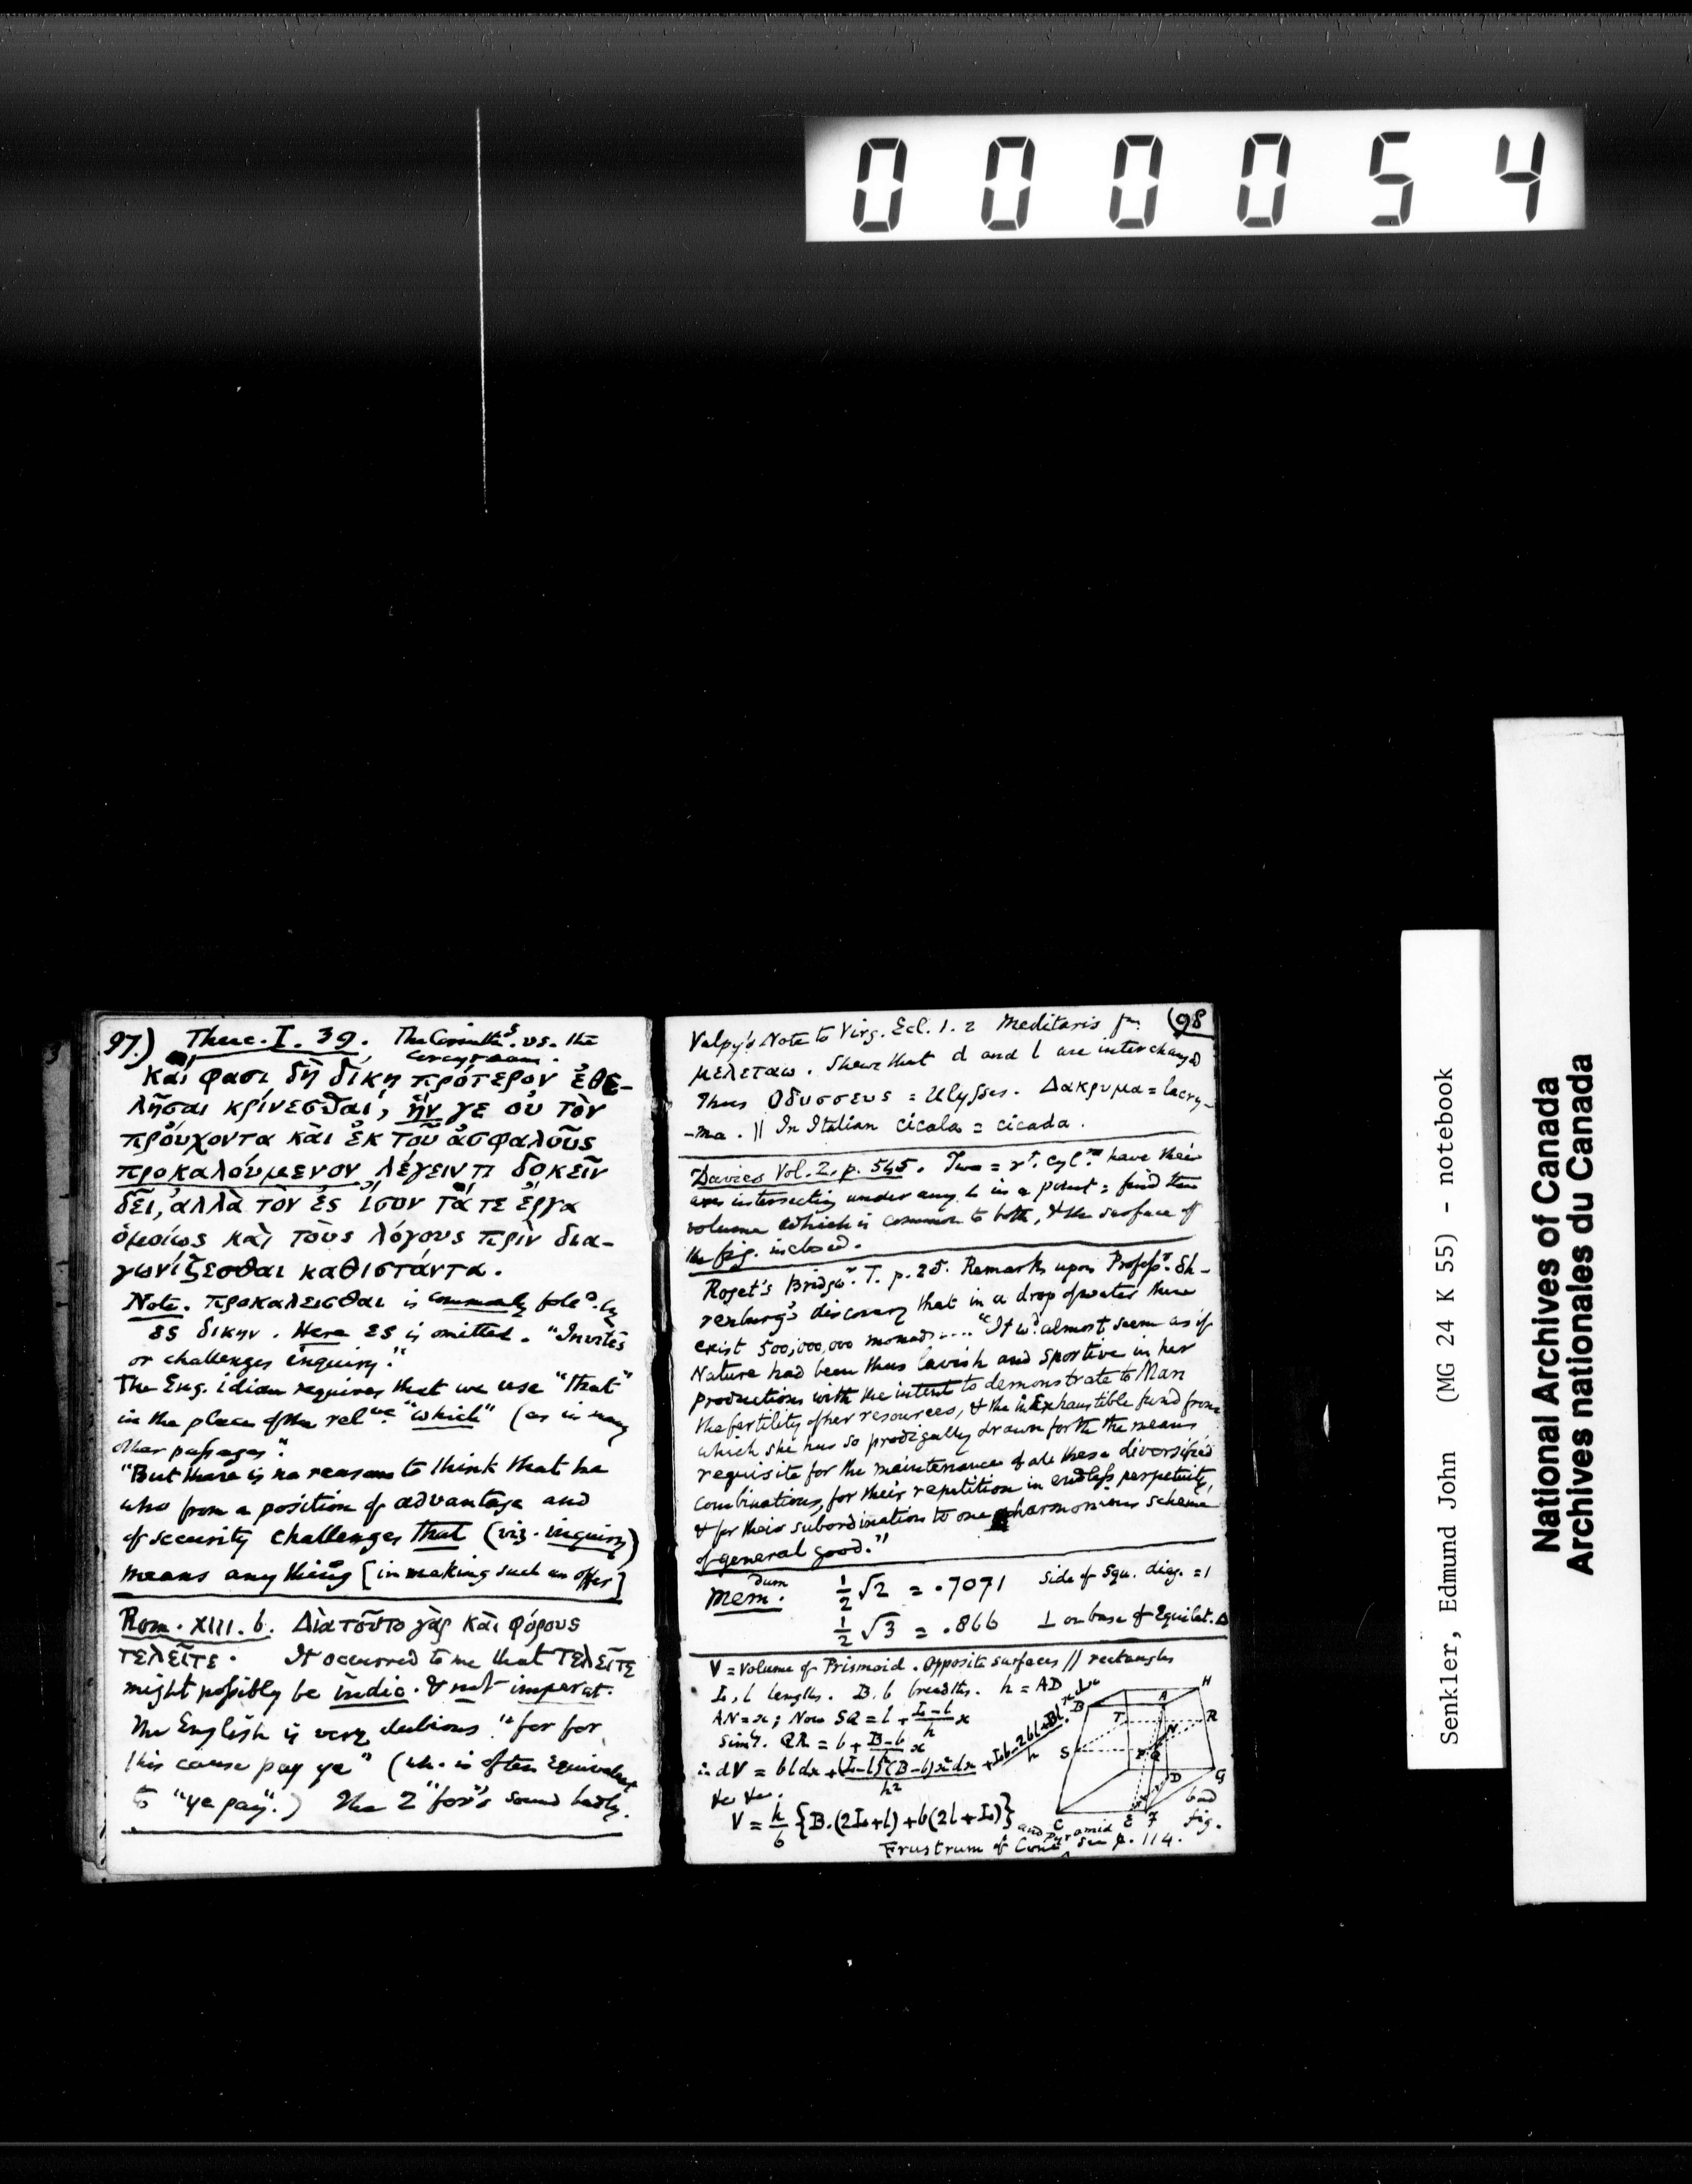 000054
97.) Thuc. I. 39. The Corinthˢ. vs. the
Corcyraeans.
Καί φασι δὴ δίκῃ πρότερον ἐθε-
λῆσαι κρίνεσθαι, ἥν γε οὐ τὸν
προὔχοντα καὶ ἐκ τοῦ ἀσφαλοῦς
προκαλούμενον λέγειν τι δοκεῖν
δεῖ, ἀλλὰ τὸν ἐς ἴσον τά τε ἔργα
ὁμοίως καὶ τοὺς λόγους πρὶν δια-
γωνίζεσθαι καθιστάντα.
Note. προκαλεισθαι is commonly folᵈ. by
ες δικην. Here ες is omitted. "Invites
or challenges inquiry."
The Eng. idiom requires that we use "that"
in the place of the relᵛᵉ "which" (as in many
other passages."
"But there is no reason to think that he
who from a position of advantage and
of security challenges that (viz. inquiry)
means any thing [in making such an offer]
Rom. XIII. 6. Διὰ τοῦτο γὰρ καὶ φόρους
τελεῖτε. It occurred to me that τελεῖτε
might possibly be indic. & not imperat.
The English is very dubious "for for
this cause pay ye" (wh. is often equivalent
to "ye pay".) The 2 "for"s sound badly.
(98
Valpy's Note to Virg. Ecl. 1. 2 Meditaris fm.
μελεταω. Shews that d and l are interchangᵈ
Thus Οδυσσευς = Ulysses. Δακρυμα = lacry-
-ma. || In Italian cicala = cicada.
Davies Vol. 2. p. 545. Two = rᵗ. cylʳˢ have their
axes intersecting under any ∠ in a point: find the
volume which is common to both, & the surface of
the fig. inclosed.
Roget's Bridgʷ. T. p. 25. Remarks upon Professʳ. Eh-
renburg's discovery that in a drop of water there
exist 500,000,000 monads.... "It wᵈ. almost seem as if
Nature had been thus lavish and sportive in her
productions with the intent to demonstrate to Man
the fertility of her resources, & the inexhaustible fund from
which she has so prodigally drawn forth the means
requisite for the maintenance of all these diversified
combinations, for their repetition in endless perpetuity,
& for their subordination to one harmonious scheme
of general good."
Mem.ᵈᵘᵐ ½√2 = .7071 Side of Squ. diag. = 1
½√3 = .866 ⊥ on base of Equilat. Δ
V = Volume of Prismoid. Opposite surfaces // rectangles
L, l lengths. B, b breadths. h = AD
AN = x; Now SQ = l + (L-l)/h x
Simˡʸ. QR = b + (B-b)/h x
∴ dV = bl dx + (L-l)(B-b)x²dx/h² + (Lb-2bl+Bl)/h x dx
&c &c.
V = h/6 {B.(2L+l)+b(2l+L)}
B A H T N R S Q D G C E F
bad
fig.
and Pyramid
Frustrum of Cone see p. 114.
Senkler, Edmund John (MG 24 K 55) - notebook
National Archives of Canada
Archives nationales du Canada